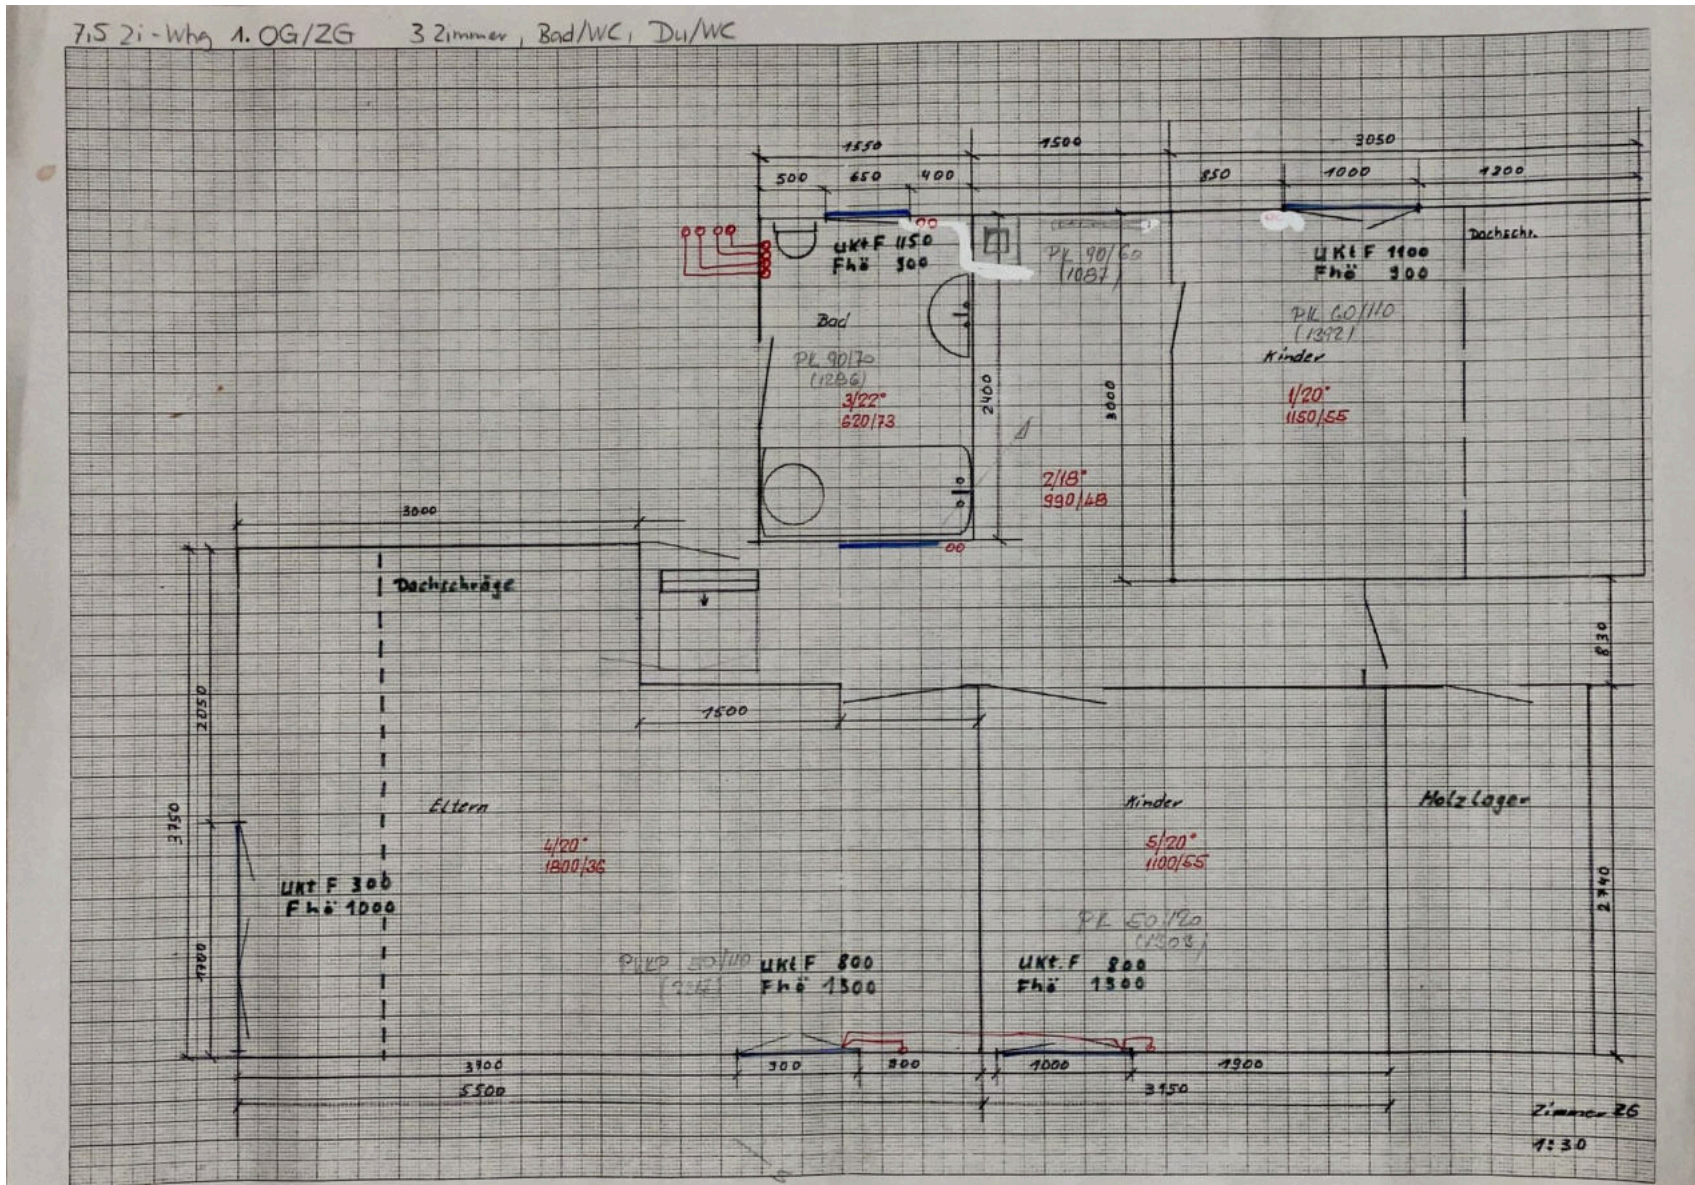 7,5 Zi-Whg 1. OG/ZG 3 Zimmer, Bad/WC, Du/WC
1550 1500 3050
500 650 400 850 1000 1200
UKt F 1150
Fhö 900
PK 90/60
(1087)
UKt F 1100
Fhö 900
Dachschr.
PK 60/110
(1392)
Kinder
1/20°
1150/55
Bad
PK 90/70
(1286)
3/22°
620/73
2400
3000
2/18°
990/48
3000
Dachschräge
830
1500
2050
3750
1700
Eltern
4/20°
1800/36
UKt F 300
Fhö 1000
UKt F 800
Fhö 1300
Kinder
5/20°
1100/55
UKt. F 800
Fhö 1300
Holzlager
2740
900 800 1000 1900
5500 3150
Zimmer ZG
1:30